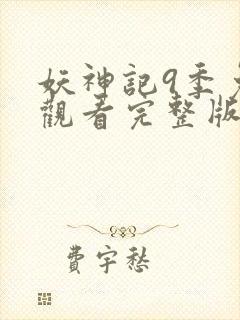 妖神記9季
觀看完整版
費宇愁